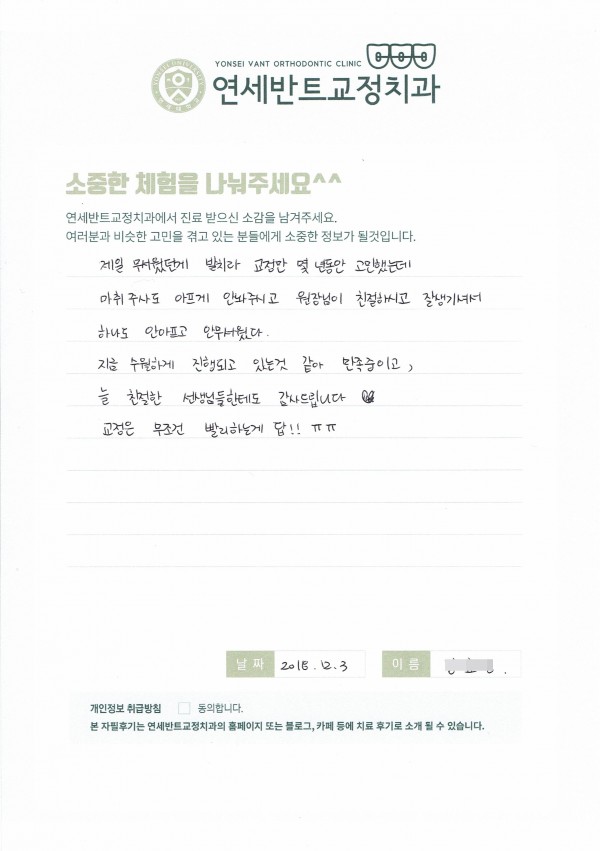 YONSEI VANT ORTHODONTIC CLINIC
연세반트교정치과
소중한 체험을 나눠주세요^^
연세반트교정치과에서 진료 받으신 소감을 남겨주세요.
여러분과 비슷한 고민을 겪고 있는 분들에게 소중한 정보가 될것입니다.
제일 무서웠던게 발치라 교정만 몇 년동안 고민했는데
마취 주사도 아프게 안놔주시고 원장님이 친절하시고 잘생기셔서
하나도 안아프고 안무서웠다.
지금 수월하게 진행되고 있는것 같아 만족중이고,
늘 친절한 선생님들한테도 감사드립니다
교정은 무조건 빨리하는게 답!! ㅠㅠ
날 짜 2018.12.3 이 름
개인정보 취급방침 동의합니다.
본 자필후기는 연세반트교정치과의 홈페이지 또는 블로그, 카페 등에 치료 후기로 소개 될 수 있습니다.